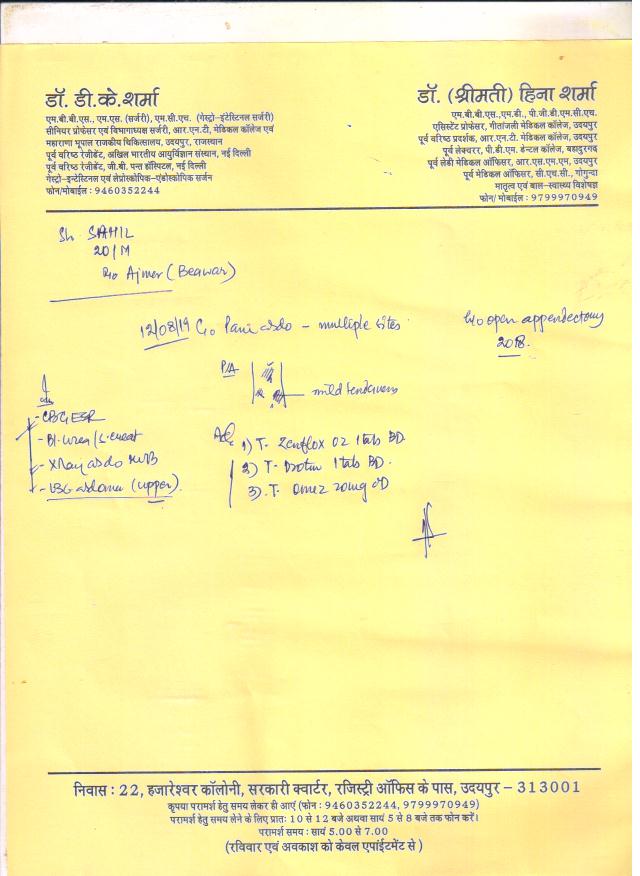 डॉ. डी.के.शर्मा
एम.बी.बी.एस., एम.एस. (सर्जरी), एम.सी.एच. (गेस्ट्रो-इंटेस्टिनल सर्जरी)
सीनियर प्रोफेसर एवं विभागाध्यक्ष सर्जरी, आर.एन.टी. मेडिकल कॉलेज एवं
महाराणा भूपाल राजकीय चिकित्सालय, उदयपुर, राजस्थान
पूर्व वरिष्ठ रेजीडेंट, अखिल भारतीय आयुर्विज्ञान संस्थान, नई दिल्ली
पूर्व वरिष्ठ रेजीडेंट, जी.बी. पन्त हॉस्पिटल, नई दिल्ली
गेस्ट्रो-इन्टेस्टिनल एवं लेप्रोस्कोपिक-एंडोस्कोपिक सर्जन
फोन/मोबाईल : 9460352244
डॉ. (श्रीमती) हिना शर्मा
एम.बी.बी.एस.,एम.डी., पी.जी.डी.एम.सी.एच.
एसिस्टेंट प्रोफेसर, गीतांजली मेडिकल कॉलेज, उदयपुर
पूर्व वरिष्ठ प्रदर्शक, आर.एन.टी. मेडिकल कॉलेज, उदयपुर
पूर्व लेक्चरर, पी.डी.एम. डेन्टल कॉलेज, बहादुरगढ़
पूर्व लेडी मेडिकल ऑफिसर, आर.एस.एम.एम, उदयपुर
पूर्व मेडिकल ऑफिसर, सी.एच.सी., गोगुन्दा
मातृत्व एवं बाल-स्वास्थ्य विशेषज्ञ
फोन/ मोबाईल : 9799970949
Sh. SAHIL
20/M
R/o Ajmer (Beawar)
12/08/19 C/o Pain abdo - multiple sites
H/o open appendectomy
2018.
P/A
mild tenderness
- CBC ESR
- Bl. urea/S. creat
- X Ray abdo
- USG abdomen (upper).
Adv
1) T. Zenflox OZ 1 tab BD
2) T. Drotin 1 tab BD.
3) T. Omez 20mg OD
निवास : 22, हजारेश्वर कॉलोनी, सरकारी क्वार्टर, रजिस्ट्री ऑफिस के पास, उदयपुर - 313001
कृपया परामर्श हेतु समय लेकर ही आएं (फोन : 9460352244, 9799970949)
परामर्श हेतु समय लेने के लिए प्रातः 10 से 12 बजे अथवा सायं 5 से 8 बजे तक फोन करें।
परामर्श समय : सायं 5.00 से 7.00
(रविवार एवं अवकाश को केवल एपांईटमेंट से )